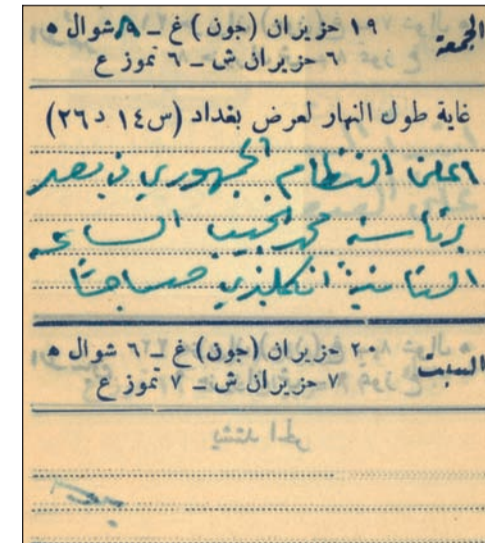 الجمعة ١٩ حزيران (جون) غ ـ ٨ شوال ه
٦ حزيران ش ـ ٦ تموز ع
غاية طول النهار لعرض بغداد (س ١٤ د ٢٦)
اعلن النظام الجمهوري في مصر
برئاسة محمد نجيب الساعة
الثامنة انكليزي صباحاً
السبت ٢٠ حزيران (جون) غ ـ ٦ شوال ه
٧ حزيران ش ـ ٧ تموز ع
يشتد الحر